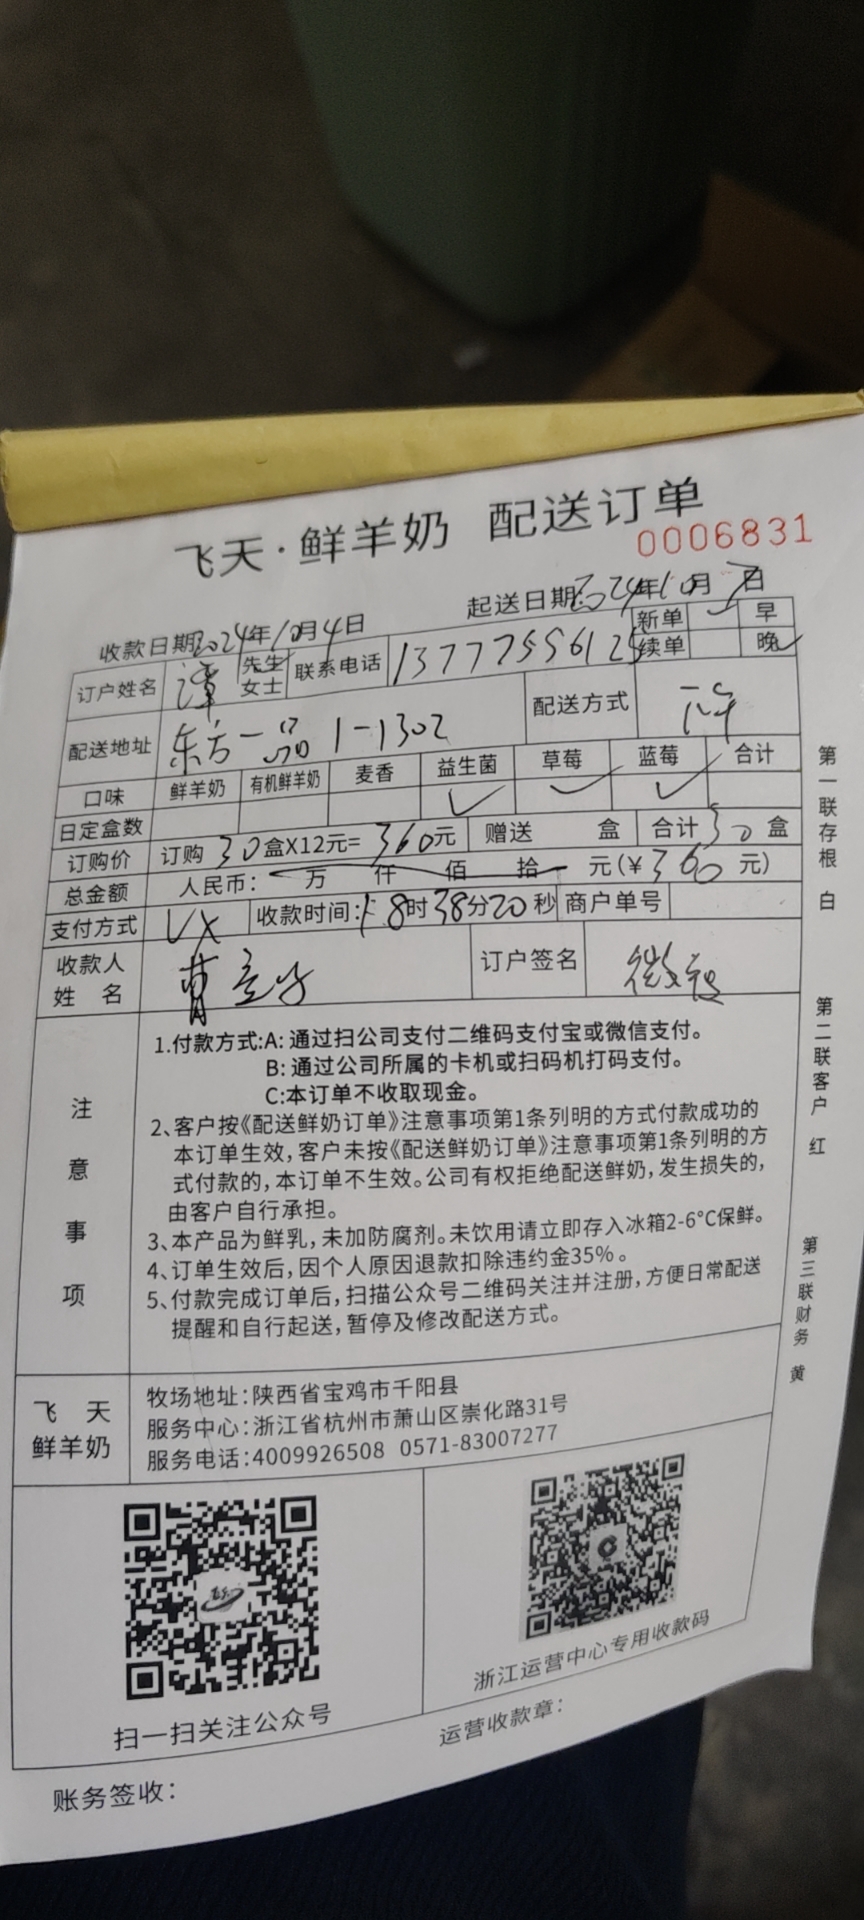 飞天·鲜羊奶 配送订单
0006831
收款日期:2024年10月4日 起送日期:2024年10月7日
订户姓名 谭 先生 女士 联系电话 13777556125 新单 早
续单 晚
配送地址 东方一品 1-1302 配送方式
口味 鲜羊奶 有机鲜羊奶 麦香 益生菌 草莓 蓝莓 合计
日定盒数 ✓ ✓ ✓
订购价 订购 30 盒X12元= 360元 赠送 盒 合计 30 盒
总金额 人民币: 万 仟 佰 拾 元(¥360 元)
支付方式 VX 收款时间:18时38分20秒 商户单号
收款人
姓 名 曹 订户签名 微
注意事项
1.付款方式:A:通过扫公司支付二维码支付宝或微信支付。
B:通过公司所属的卡机或扫码机打码支付。
C:本订单不收取现金。
2、客户按《配送鲜奶订单》注意事项第1条列明的方式付款成功的
本订单生效,客户未按《配送鲜奶订单》注意事项第1条列明的方
式付款的,本订单不生效。公司有权拒绝配送鲜奶,发生损失的,
由客户自行承担。
3、本产品为鲜乳,未加防腐剂。未饮用请立即存入冰箱2-6°C保鲜。
4、订单生效后,因个人原因退款扣除违约金35%。
5、付款完成订单后,扫描公众号二维码关注并注册,方便日常配送
提醒和自行起送,暂停及修改配送方式。
飞 天
鲜羊奶
牧场地址:陕西省宝鸡市千阳县
服务中心:浙江省杭州市萧山区崇化路31号
服务电话:4009926508 0571-83007277
扫一扫关注公众号
浙江运营中心专用收款码
账务签收:
运营收款章:
第一联存根 白
第二联客户 红
第三联财务 黄